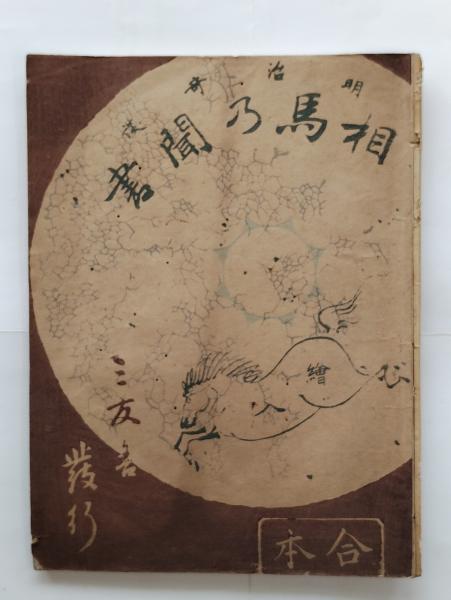 明治奇
相馬乃聞書
繪入
三友舎
發行
合本